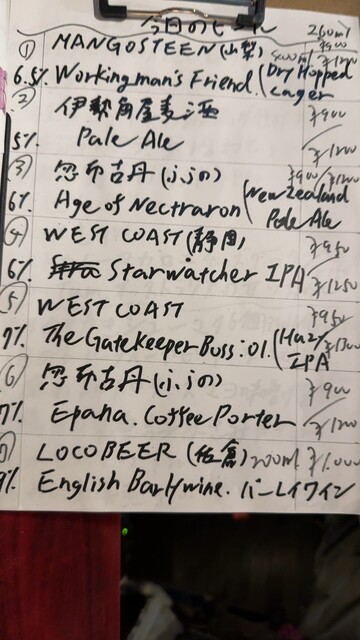 今日のビール 260ml
① MANGOSTEEN (山梨) 400ml ¥900
6.5% Workingman's Friend. (Dry Hopped Lager ¥1200
② 伊勢角屋麦酒 ¥900
5% Pale Ale ¥1200
③ 忽布古丹 (ふらの) ¥900 ¥1200
6% Age of Nectraron (New Zealand Pale Ale
④ WEST COAST (静岡) ¥950
6% Starwatcher IPA ¥1250
⑤ WEST COAST ¥950
7% The Gatekeeper Boss: 01. (Hazy IPA ¥1300
⑥ 忽布古丹 (ふらの) ¥900
7% Epaha. Coffee Porter ¥1200
LOCOBEER (佐倉) 200ml ¥1.000
9% English Barlywine. バーレイワイン